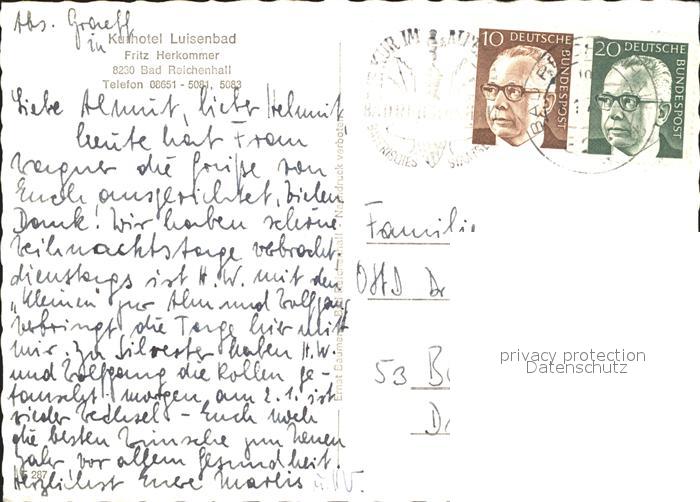 Abs. Graeff
in
Kurhotel Luisenbad
Fritz Herkommer
8230 Bad Reichenhall
Telefon 08651 - 5081, 5083
Liebe Almut, lieber Helmut
heute hat Frau
Wagner die Grüße von
Euch ausgerichtet, vielen
Dank! Wir haben schöne
Weihnachtstage verbracht.
dienstags ist H.W. mit den
"Kleinen" zur Alm und Wolfgang
verbringt die Tage hier mit
mir. Zu Silvester haben H.W.
und Wolfgang die Rollen ge-
tauscht morgen am 2.1. ist
wieder Wechsel - Euch noch
die besten Wünsche zum neuen
Jahr vor allem Gesundheit.
Herzlichst Eure Marlis
287
Nachdruck verboten
KUR IM
BAYERISCHES
10 DEUTSCHE BUNDESPOST
20 DEUTSCHE BUNDESPOST
Famili
OStD Dr
53 B
privacy protection
Datenschutz